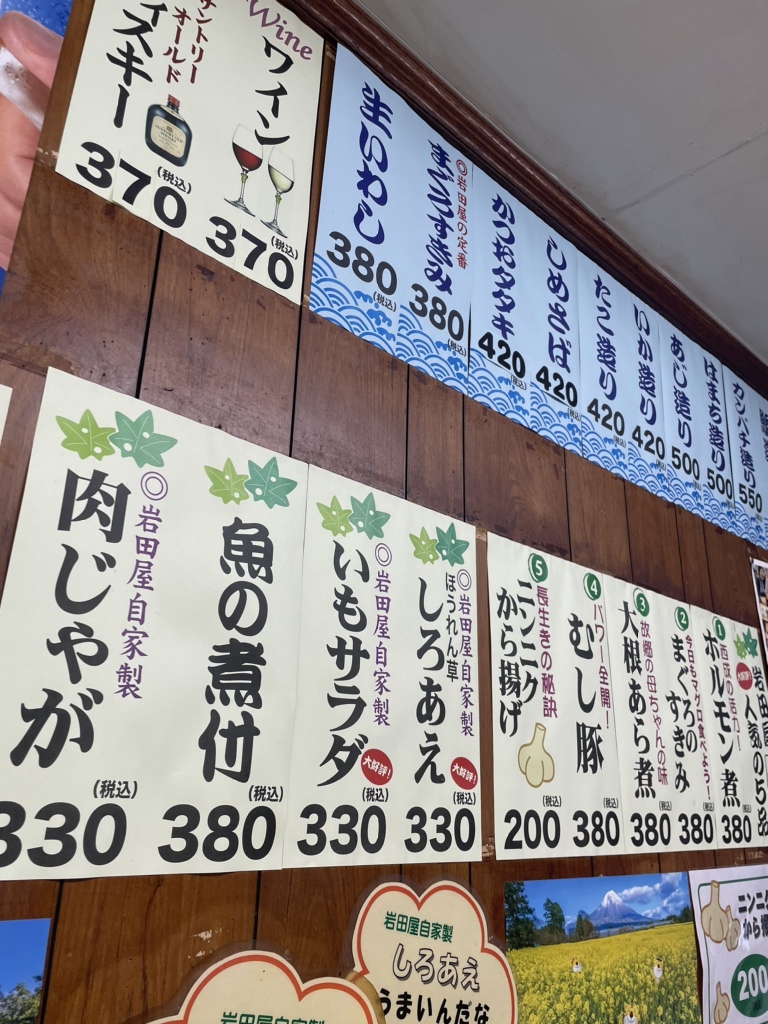 Wine
ワイン
370
(税込)
サントリー
オールド
イスキー
370
(税込)
生いわし
380
(税込)
◎岩田屋の定番
まぐろすきみ
380
(税込)
かつおタタキ
420
(税込)
しめさば
420
(税込)
たこ造り
420
(税込)
いか造り
420
(税込)
あじ造り
500
はまち造り
500
カンパチ造り
550
◎岩田屋自家製
肉じゃが
330
(税込)
魚の煮付
380
(税込)
◎岩田屋自家製
いもサラダ
大好評!
330
(税込)
◎岩田屋自家製
ほうれん草
しろあえ
大好評!
330
(税込)
⑤
長生きの秘訣
ニンニク
から揚げ
200
(税込)
④
パワー全開!
むし豚
380
(税込)
③
故郷の母ちゃんの味
大根あら煮
380
(税込)
②
今日もマグロ食べよう!
まぐろの
すきみ
380
(税込)
①
西成の活力!
ホルモン煮
380
(税込)
岩田屋
人気の5品
岩田屋自家製
しろあえ
うまいんだな
岩田屋自家製
ニンニク
から揚
200